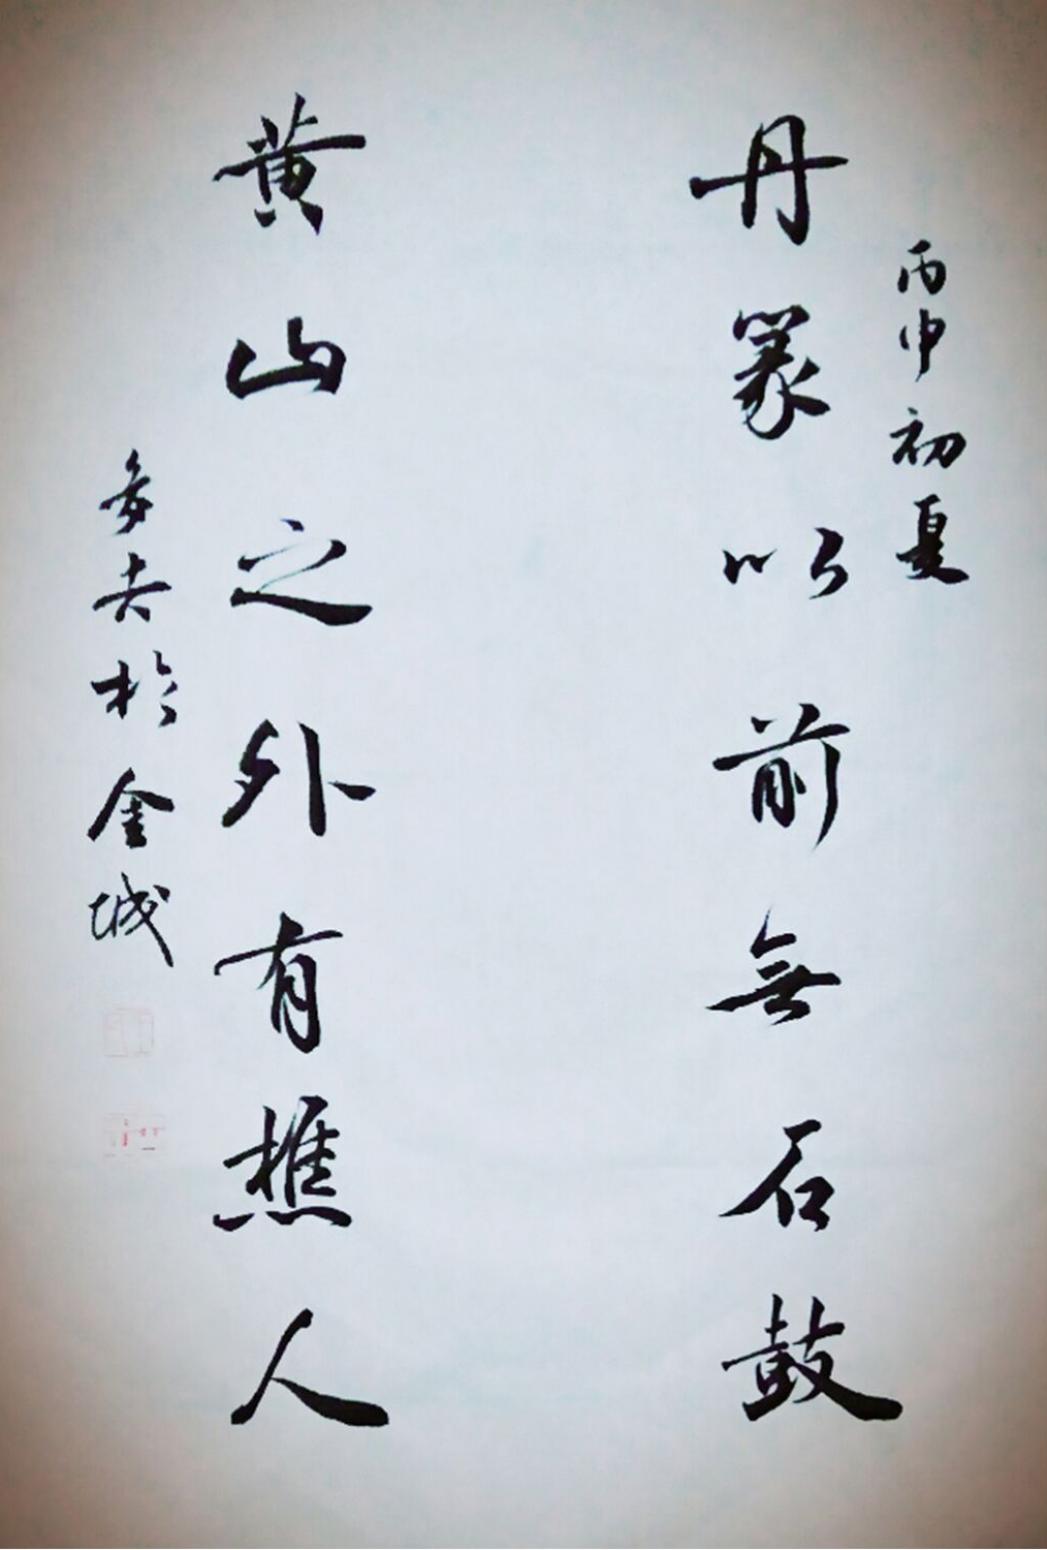 丙申初夏
丹篆以前無石鼓
黄山之外有樵人
多吉於金城